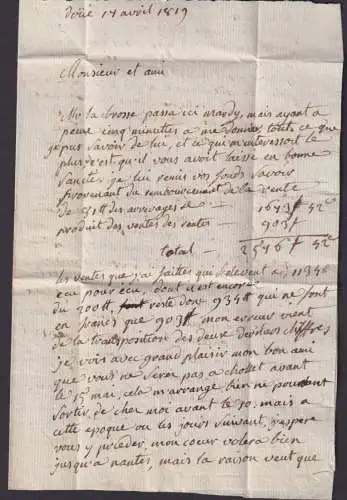 Doüé 17 avril 1819
Monsieur et ami
Mr la Brosse passa ici mardy, mais ayant a
peine cinq minuttes a me donner, toutte ce que
je pus savoir de lui, et ce qui m'interessoit le
plus, c'est qu'il vous avoit laissé en bonne
santée; je lui remis vos fonds savoir
provenant du remboursement de la vente
de des arrerages 1643 52c
produit des ventes des 903
total 2546 52c
les ventes que j'ai faittes qui s'elevent a 1134
ecu pour ecu, dont est encore
du 200 reste donc 934 qui ne font
en francs que 903 mon erreur vient
de la transposition des deux derniers chiffres
je vois avec grand plaisir mon bon ami
que vous ne serés pas a chollet avant
le 15 may, cela m'arrange bien ne pouvant
sortir de chez moi avant le 10. mais a
cette epoque ou les jours suivant, j'espere
vous y préceder, mon coeur volera bien
jusqu'a nantes, mais la raison veut que